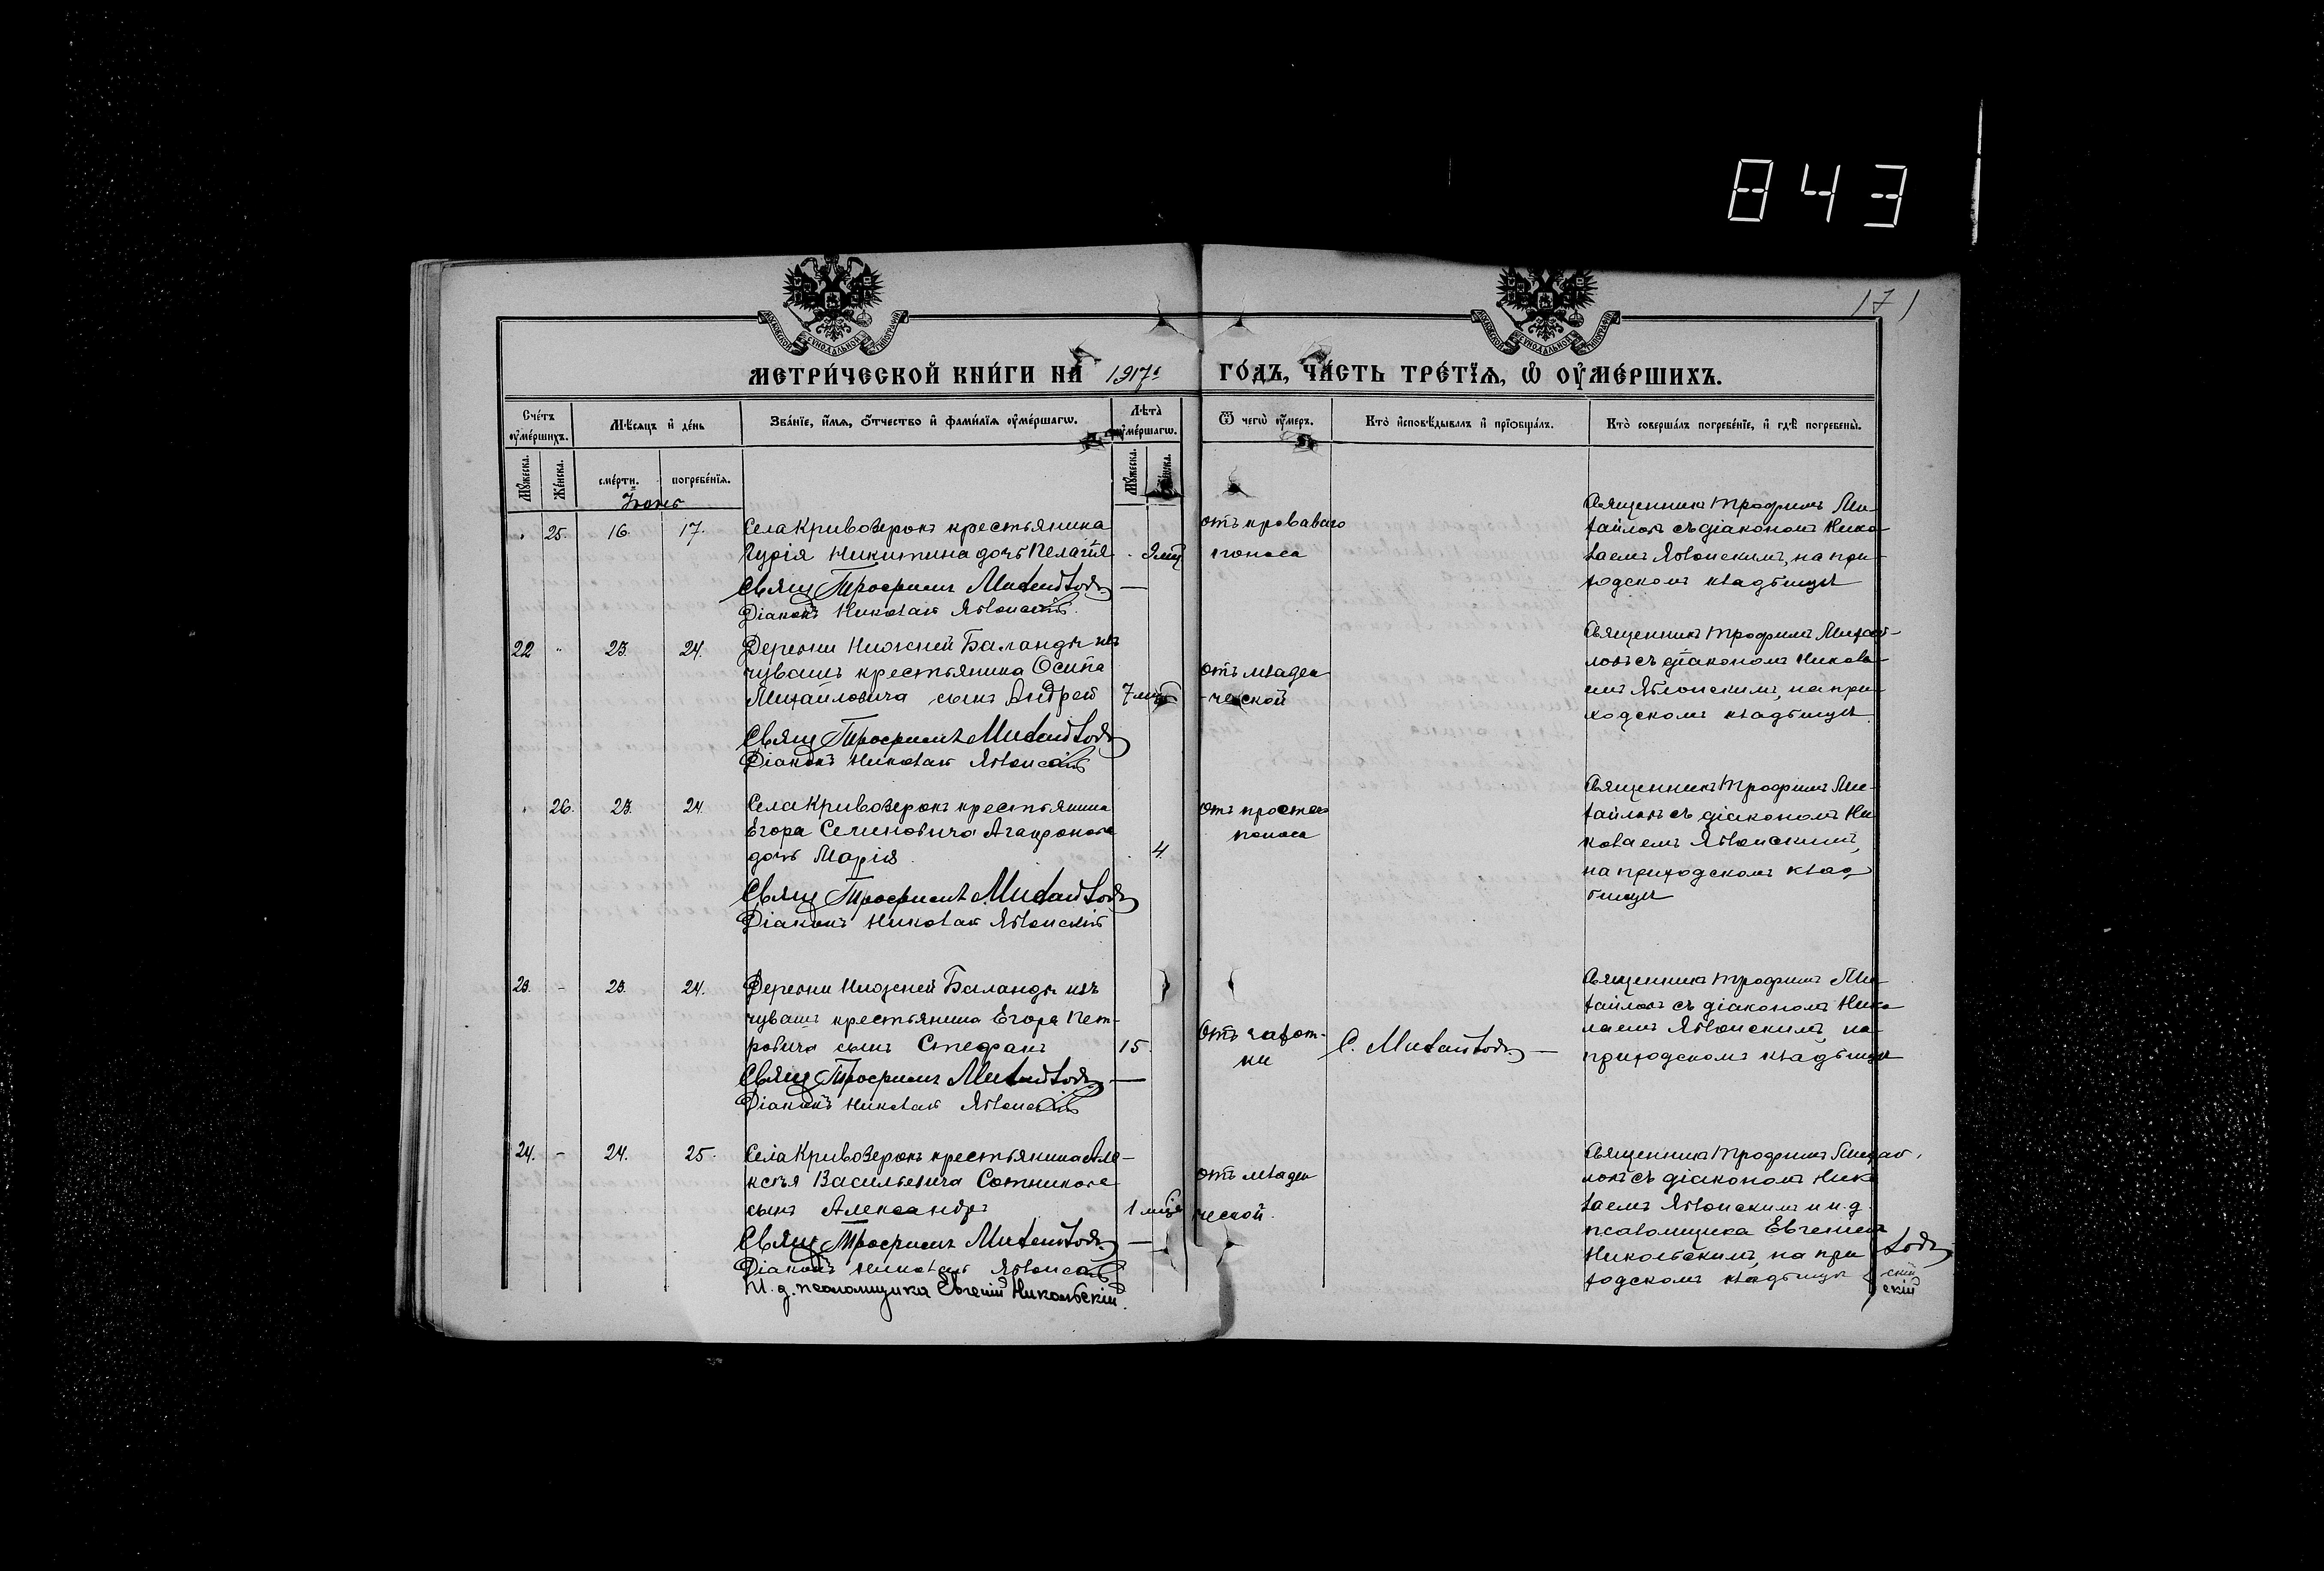 843
171
МОСКОВСКОЙ СѴНОДАЛЬНОЙ ТИПОГРАФІИ
МОСКОВСКОЙ СѴНОДАЛЬНОЙ ТИПОГРАФІИ
МЕТРИ́ЧЕСКОЙ КНИ́ГИ НА 1917 г. ГО́ДЪ, ЧА́СТЬ ТРЕ́ТЇѦ, Ѡ҆ ОУ҆МЕ́РШИХЪ.
Сче́тъ оу҆ме́ршихъ.
Мѣ́сѧцъ и҆ де́нь
Зва́нїе, и҆́мѧ, ѻ҆́тчество и҆ фами́лїѧ оу҆ме́ршагѡ.
Лѣ́та оу҆ме́ршагѡ.
Ѿ чегѡ̀ оу҆́меръ.
Кто̀ и҆сповѣ́дывалъ и҆ прїѻбща́лъ.
Кто̀ соверша́лъ погребе́нїе, и҆ гдѣ̀ погребены̀.
Мꙋ́жеска.
Же́нска.
сме́рти.
погребе́нїѧ.
Мꙋ́жеска.
Же́нска.
Іюнь
25. 16. 17.
Села Кривозерокъ крестьянина
Гурія Никитина дочь Пелагія
9 мц
Свящ Трофимъ Михайловъ
Діаконъ Николай Яблонскій
отъ кроваваго
поноса
Священникъ Трофимъ Ми-
хайловъ съ діакономъ Нико-
лаемъ Яблонскимъ, на при-
ходскомъ кладбищѣ
22 " 23. 24.
Деревни Нижней Баланды изъ
чувашъ крестьянина Осипа
Михайловича сынъ Андрей
7 мц
Свящ Трофимъ Михайловъ
Діаконъ Николай Яблонскій
отъ младен
-ческой
Священникъ Трофимъ Михай-
ловъ съ діакономъ Никола-
емъ Яблонскимъ, на при-
ходскомъ кладбищѣ.
26. 23. 24.
Села Кривозерокъ крестьянина
Егора Семеновича Агафонова
дочь Марія.
4.
Свящ Трофимъ Михайловъ
Діаконъ Николай Яблонскій
Отъ простого
поноса
Священникъ Трофимъ Ми-
хайловъ съ діакономъ Ни
колаемъ Яблонскимъ,
на приходскомъ клад
бищѣ
23. - 23. 24.
Деревни Нижней Баланды изъ
чувашъ крестьянина Егора Пет-
ровича сынъ Стефанъ
15.
Свящ Трофимъ Михайловъ
Діаконъ Николай Яблонскій
Отъ чахот-
ки
С. Михайловъ
Священникъ Трофимъ Ми-
хайловъ съ діакономъ Нико
лаемъ Яблонскимъ, на
приходскомъ кладбищѣ
24. - 24. 25.
Села Кривозерокъ крестьянина Але-
ксѣя Васильевича Сотникова
сынъ Александръ
1 мца
Свящ Трофимъ Михайловъ
Діаконъ Николай Яблонскій
И. д. псаломщика Евгеній Никольскій.
отъ младен
ческой.
Священникъ Трофимъ Михай
ловъ съ діакономъ Нико
лаемъ Яблонскимъ и и. д.
псаломщика Евгеніемъ
Никольскимъ, на при
ходскомъ кладбищѣ
ловъ
скій
скій